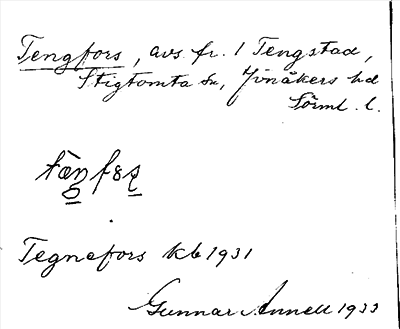 Tengfors, avs. fr. 1 Tengstad,
Stigtomta sn, Jönåkers hd
Sörml. l.
tæ̀ŋfɷʂ
Tegnefors kb 1931
Gunnar Annell 1933